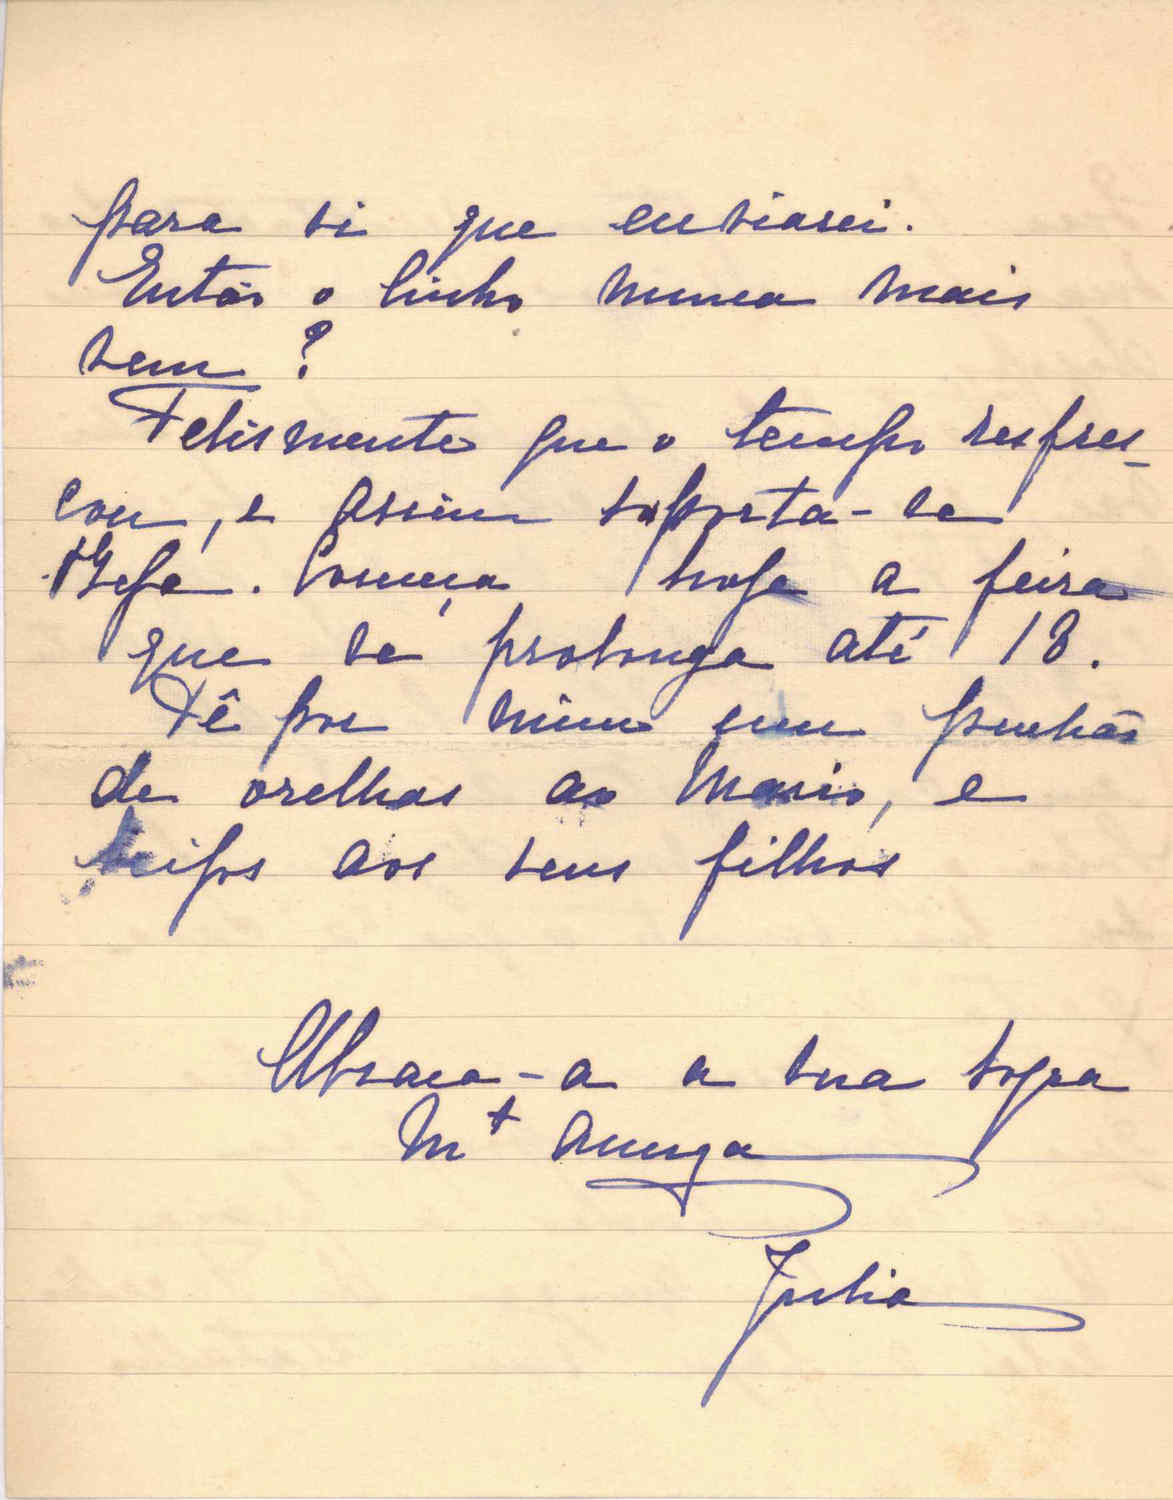 para si que enviarei.
Então o linho nunca mais
vem?
Felismente que o tempo resfres-
cou, e assim soporta-se
Beja. Começa hoje a feira
que se prolonga até 18.
Dê por mim um puchão
de orelhas ao Mario, e
beijos aos seus filhos
Abraça-a a sua sogra
Mt Amiga
Julia